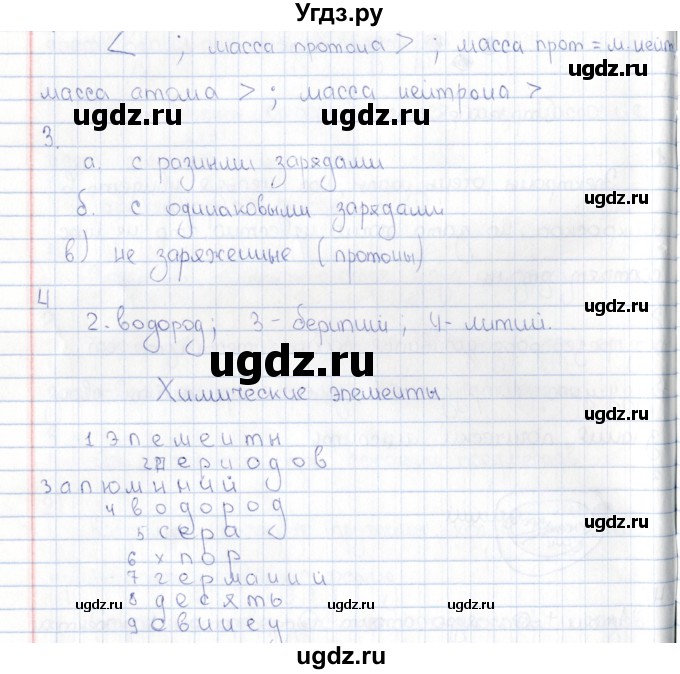 Угдз.ру
< ; масса протона > ; масса прот = м. нейт
масса атома > ; масса нейтрона >
ugdz.ru ugdz.ru ugdz.ru
3.
а. с разными зарядами
ugdz.ru ugdz.ru
б. с одинаковыми зарядами
в) не заряженные (протоны)
ugdz.ru ugdz.ru ugdz.ru
4
2. водород; 3 - берилий; 4 - литий.
ugdz.ru
Химические элементы
ugdz.ru ugdz.ru
1 элементн
2 периодов
3 алюминий
4 водород
ugdz.ru ugdz.ru ugdz.ru
5 сера
6 хлор
7 германий
8 десять
ugdz.ru ugdz.ru ugdz.ru
9 свинец
ugdz.ru